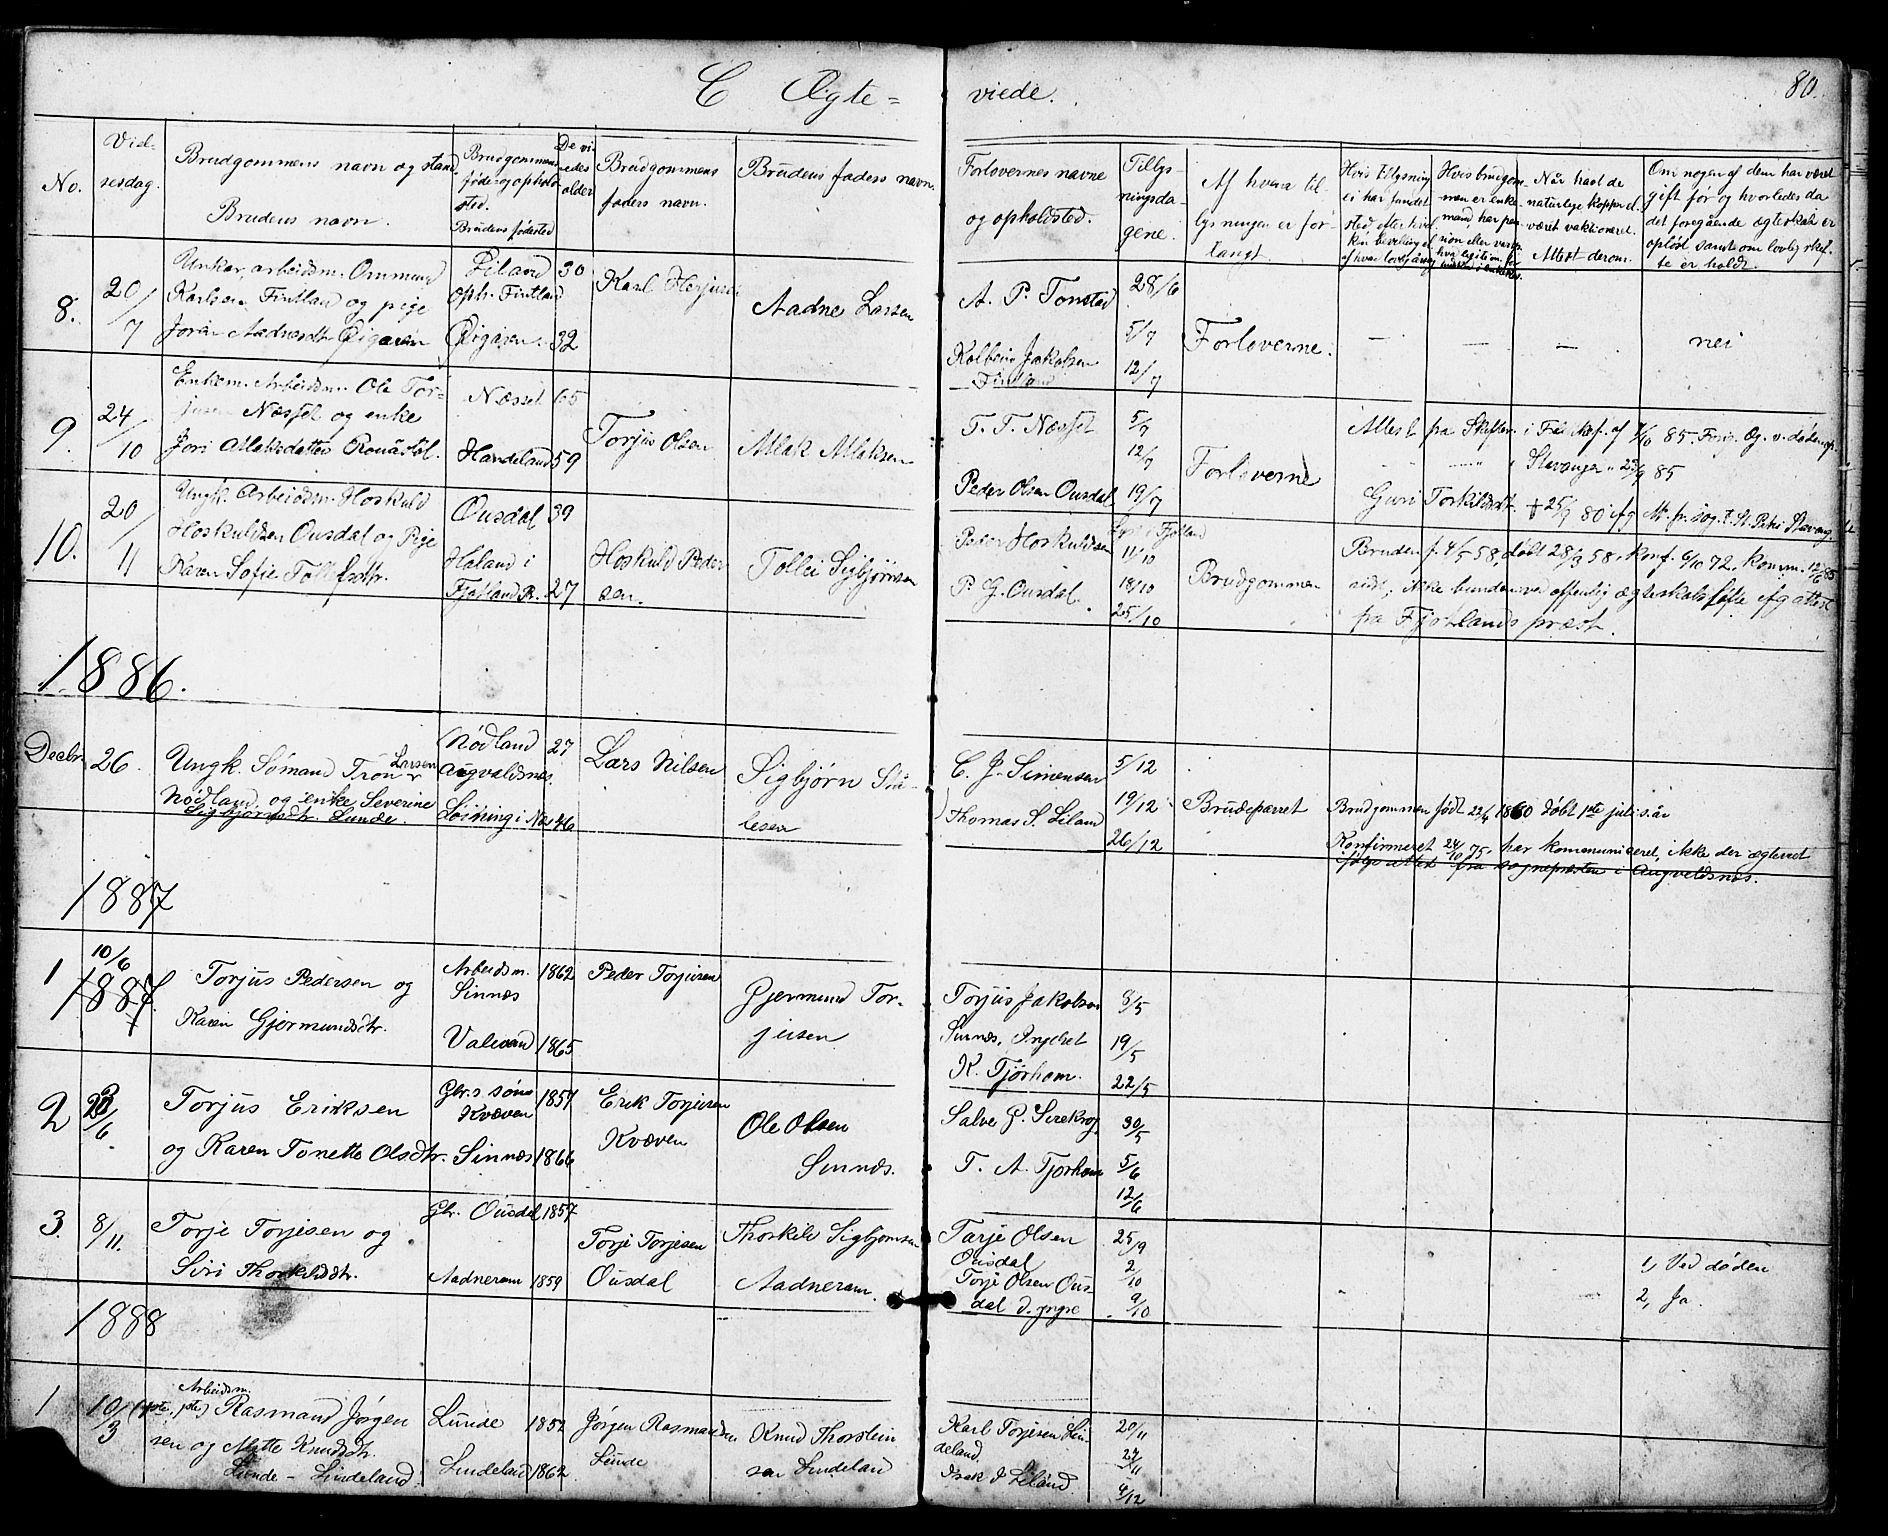 C Ægte= viede. 80.
No.
Viel-
sesdag.
Brudgommens navn og stand
Brudens navn.
Brudgommens
føde og opholds
sted.
Brudens fødested
De vi-
edes
alder
Brudgommens
faders navn.
Brudens faders navn.
Forlovernes navne
og opholdsted.
Tillys-
ningsda-
gene.
Af hvem til
lysningen er for-
langt.
Hvis tillysning
ei har fundet
sted, efter hvil
ken bevilling el
Hvis brudgom-
men er enke-
mand, har pen
sion eller
Når havt de
naturlige kopper el.
været vaktioneret.
Attest derom.
Om nogen af dem har været
gift før og hvorledes da
det foregående ægteskab er
opløst samt om lovlig skif-
te er holdt.
8.
20/7
Unkar, arbeidsm. Ommund
Karlsen Fintland og pige
Joran Aadnesdtr Øigaren
Liland
oph. Fintland
Øigaren.
30
32
Karl
Aadne Larsen
A. P. Tonstad
Kolbein Jakobsen
Fintland
28/6
5/7
12/7
Forloverne.
— — —
nei
9.
24/10
Enkem. Arbeidsm. Ole Tor-
jusen Næsset og enke
Jori Atlaksdatter
Næsset
Handeland
65
59
Torjus Olsen
Atlak Atlaksen
T. T. Næsset
Peder Olsen Ousdal
5/7
12/7
19/7
Forloverne
Attest fra Skifter. i
Stavanger 85
Guri Torkildsdt.
10.
20/11
Ungk. Arbeidsm. Hoskuld
Hoskuldsen Ousdal og Pige
Karen Sofie
Ousdal
Haland i
Fjotland
39
27
Hoskuld Peder
sen.
Tollei Sigbjørnsen
Peder Hoskuldsen
P. G. Ousdal.
11/10
18/10
25/10
Brudgommen
Bruden f. 4/5 58, døbt 28/3 58, konf. 6/10 72, komm. 12/6 85
aldt, ikke bunden ved offenlig ægteskabsløfte ifg attest
fra Fjotlands præst.
1886.
Decbr.
26.
Ungk. Sømand Tron Larsen
Nødland, og enke Severine
Sigbjørnsdtr. Lunde.
Nødland
Augvaldsnes
Løining i Nes
27
46
Lars Nilsen
Sigbjørn
lesen
C. J. Simensen
Thomas S. Liland
5/12
19/12
26/12
Brudeparret
Brudgommen født 22/4 1860 døbt 1ste juli s. år
Konfirmeret 24/10 75, har kommuniceret, ikke der ægteviet
ifølge attest fra sognepresten i Augveldsnæs.
1887
1
10/6
1887.
Torjus Pedersen og
Karen Gjermundsdtr.
Arbeidsm.
Sinnæs
Valevand
1862
1865
Peder Torjusen
Gjermund Tor-
jusen
Torjus Jakobsen
Sinnæs, Ingebret
K. Tjørhom.
8/5
19/5
22/5
2
/6
Torjus Eriksen
og Karen Tonette Olsdtr.
Gbr.s søn
Kvæven
Sinnæs
1857
1866
Erik Torjusen
Kvæven
Ole Olsen
Sinnæs.
Salve P. Sirekrog
T. A. Tjorhom
30/5
5/6
12/6
3.
8/11.
Torje Torjesen og
Siri Thorkildsdtr.
Gbr. Ousdal
Aadneram
1857
1859
Torje Torjesen
Ousdal
Thorkild Sigbjørnsen
Aadneram.
Tarje Olsen
Ousdal
Torje Olsen Ous-
dal d. yngre
25/9
2/10
9/10
1, Ved døden
2, Ja.
1888
1
10/3
Arbeidsm.
Rasmand Jørgen
sen og Mette Knudsdtr.
Lunde – Lindeland.
Lunde
Lindeland
1852
1862
Jørgen Rasmandsen
Lunde
Knud Thorstein
sen Lindeland
Karl Torjesen Lin-
deland.
Isak J Liland.
20/11
27/11
4/12